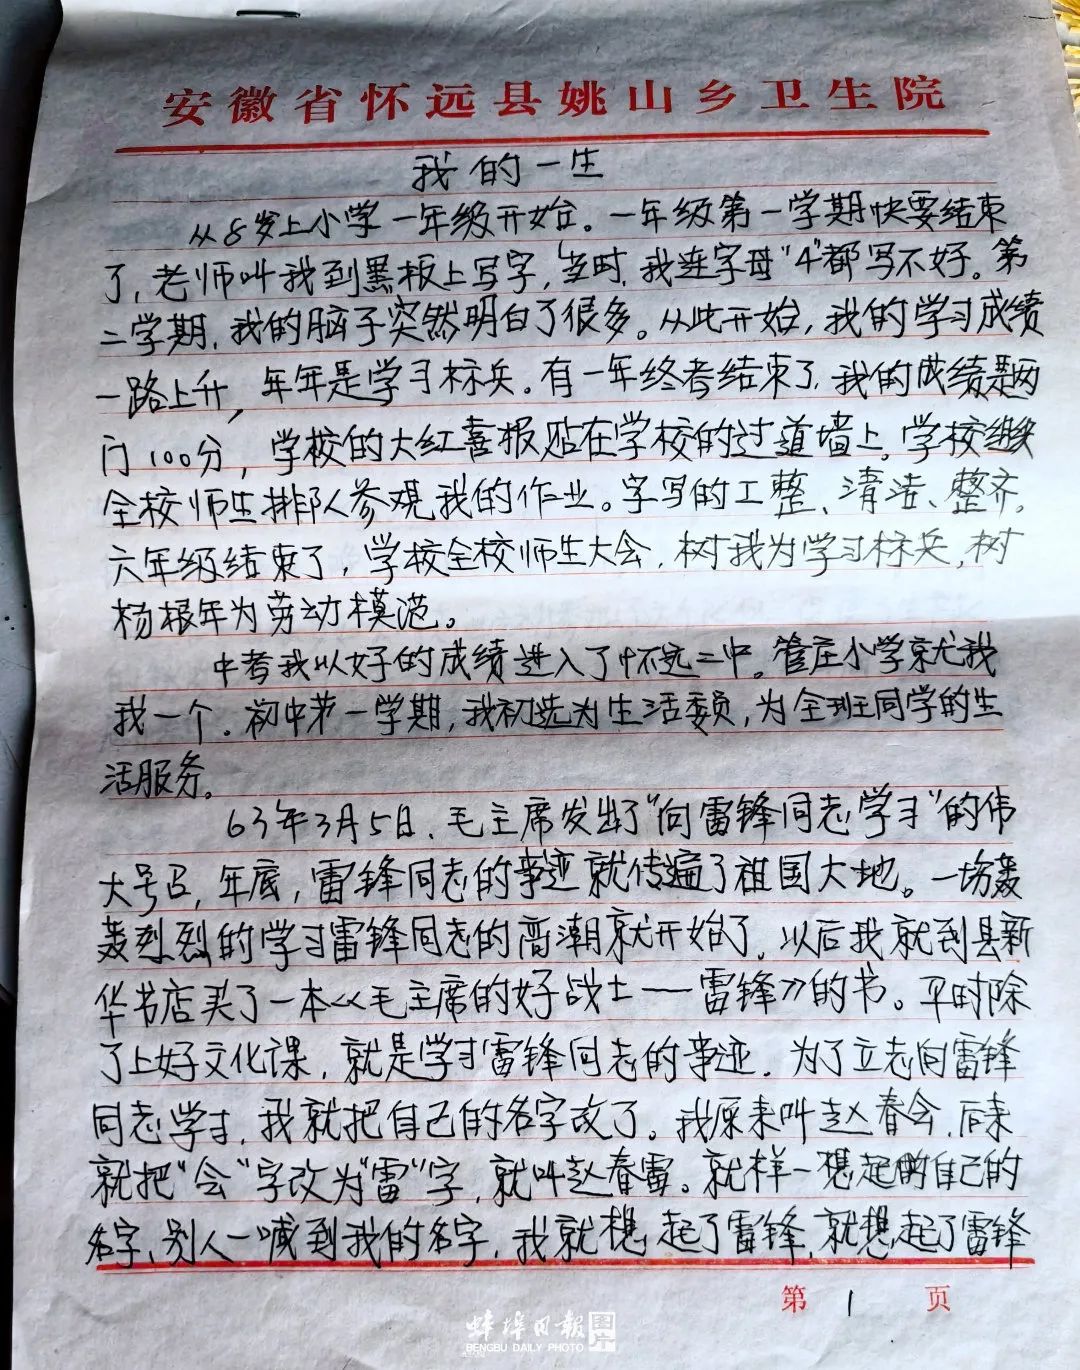 安徽省怀远县姚山乡卫生院
我的一生
从8岁上小学一年级开始。一年级第一学期快要结束
了,老师叫我到黑板上写字,当时,我连字母“4”都写不好。第
二学期,我的脑子突然明白了很多。从此开始,我的学习成绩
一路上升,年年是学习标兵。有一年终考结束了,我的成绩是两
门100分,学校的大红喜报贴在学校的过道墙上。学校组织
全校师生排队参观我的作业。字写的工整、清洁、整齐。
六年级结束了,学校全校师生大会,树我为学习标兵,树
杨根年为劳动模范。
中考我以好的成绩进入了怀远二中。管庄小学就我
我一个。初中第一学期,我初选为生活委员,为全班同学的生
活服务。
63年3月5日、毛主席发出了“向雷锋同志学习”的伟
大号召,年底,雷锋同志的事迹就传遍了祖国大地。一场轰
轰烈烈的学习雷锋同志的高潮就开始了。以后我就到县新
华书店买了一本《毛主席的好战士——雷锋》的书。平时除
了上好文化课,就是学习雷锋同志的事迹。为了立志向雷锋
同志学习,我就把自己的名字改了。我原来叫赵春会,后来
就把“会”字改为“雷”字,就叫赵春雷。就样一想起自己的
名字、别人一喊到我的名字,我就想起了雷锋,就想起了雷锋
第 1 页
蚌埠日报 图片
BENGBU DAILY PHOTO